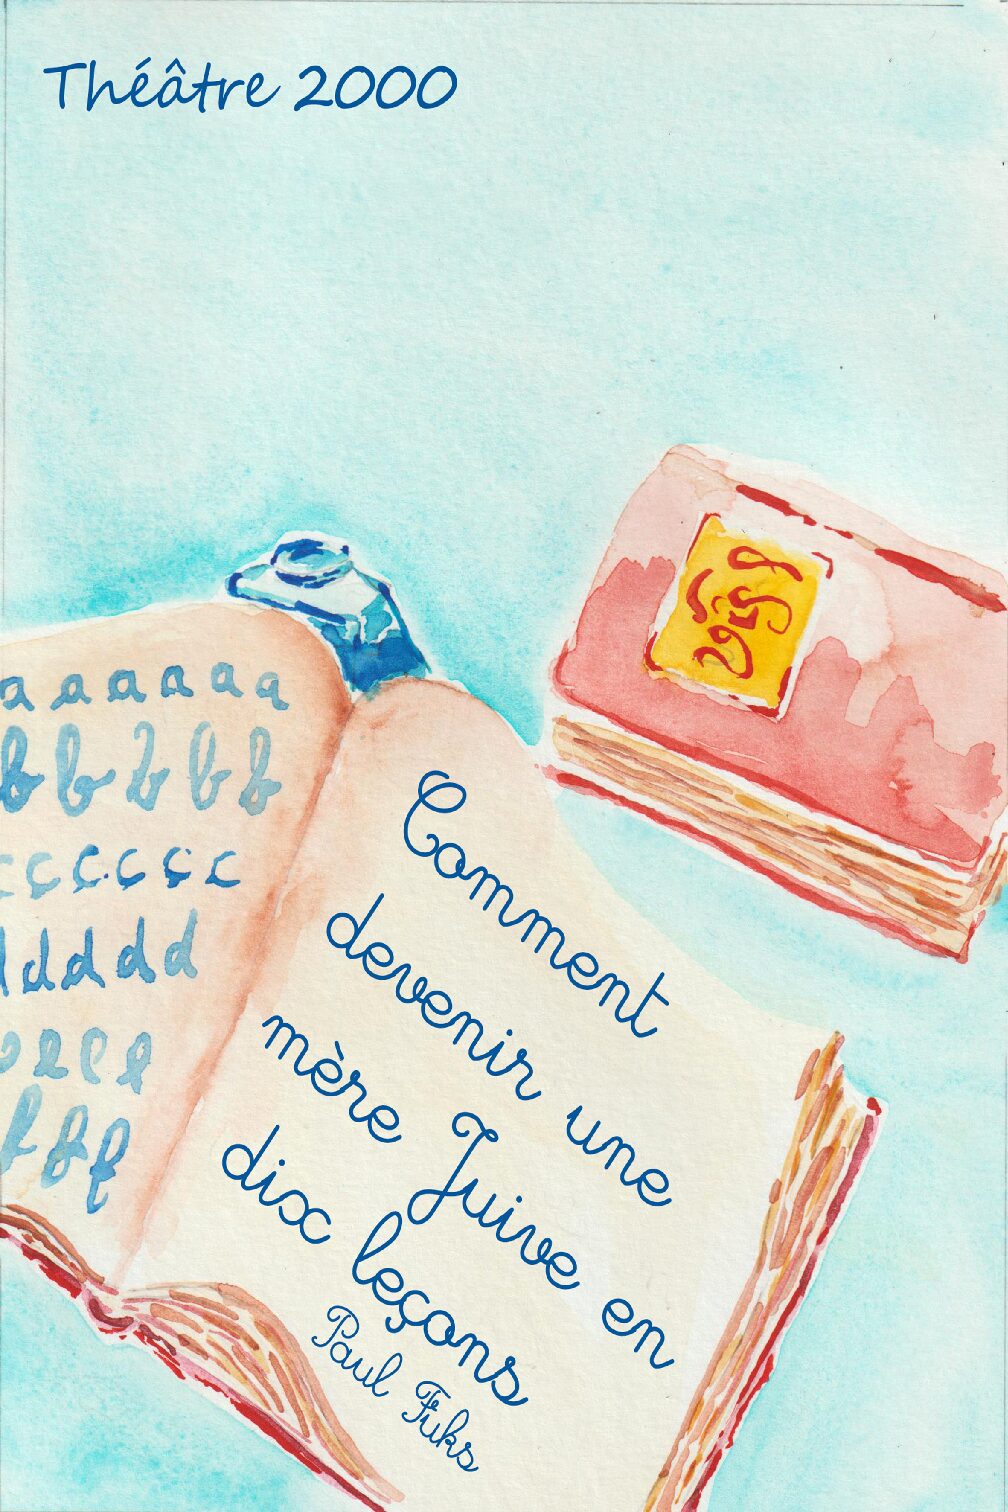 Théâtre 2000
a a a a a a
b b b b b
c ç c ç ç c
d d d d d
e e e e
f f f
Comment
devenir une
mère Juive en
dix leçons
Paul Fuks